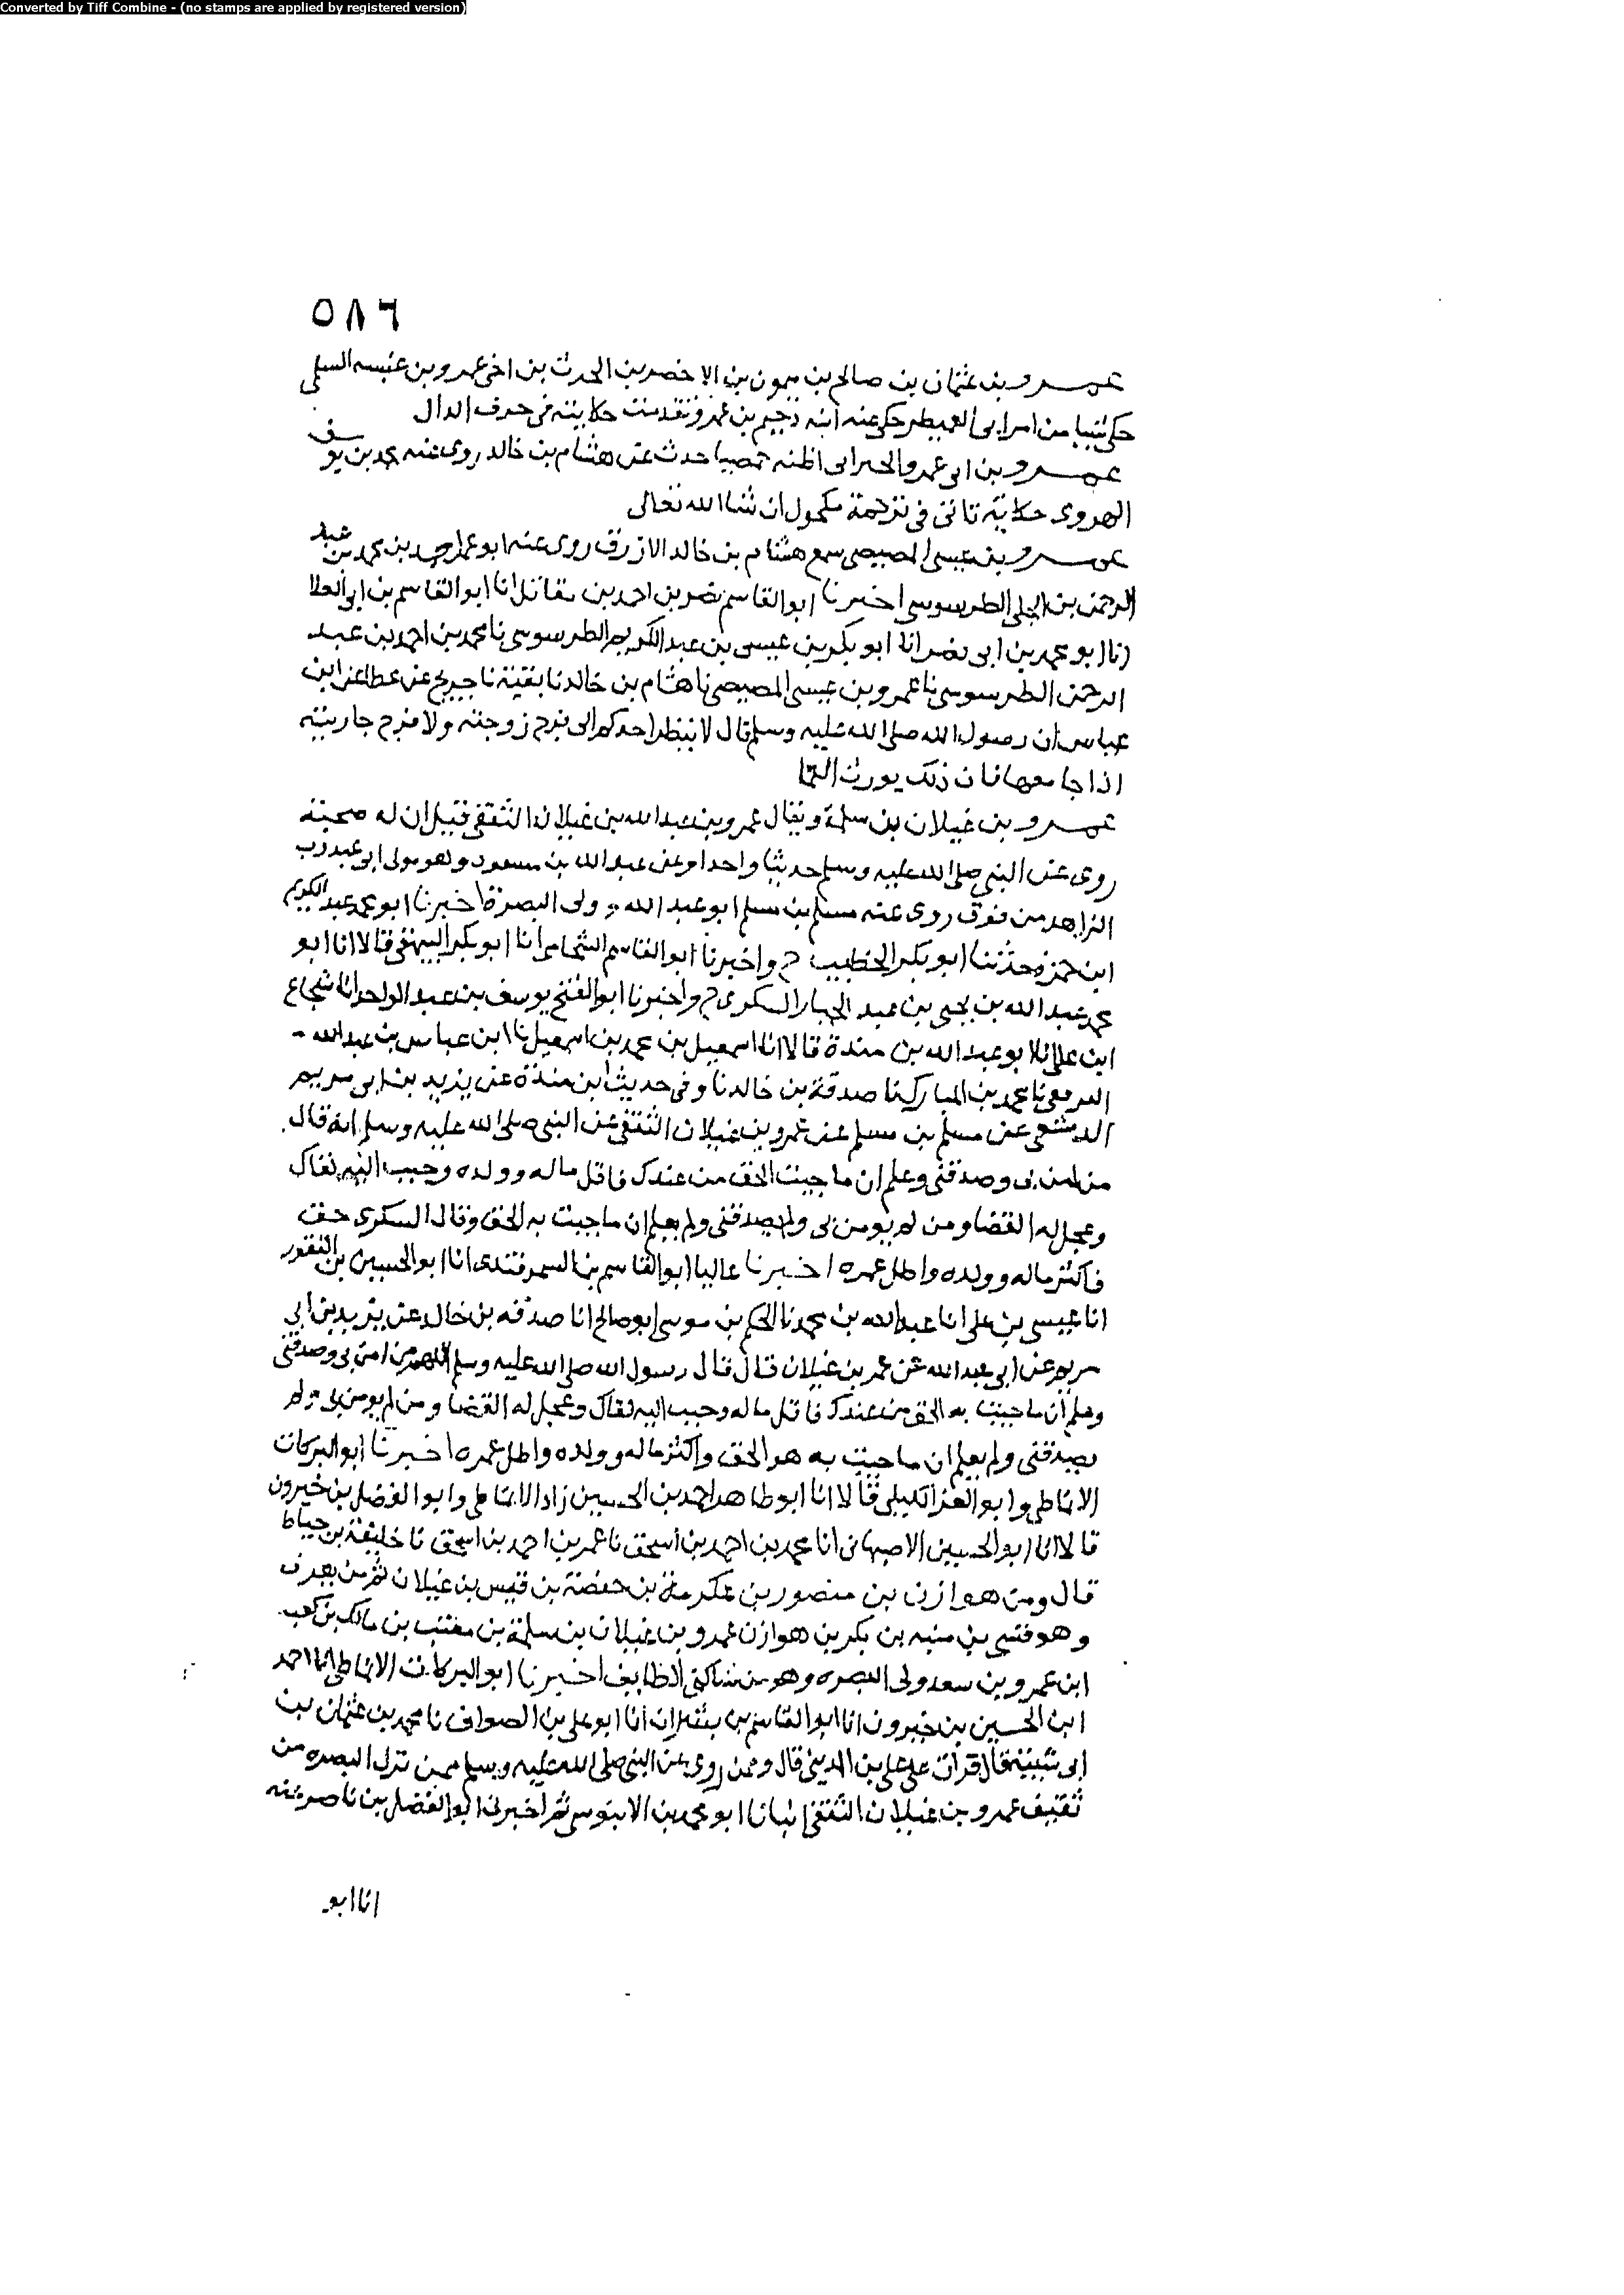 Converted by Tiff Combine - (no stamps are applied by registered version)
٥٨٦
عمرو بن عثمان بن صالح بن ميمون بن الاخضر بن الحرث بن اخى عمرو بن عنبسه السلمى
حكى شيا من امر ابى العميطر حكى عنه ابنه دحيم بن عمرو تقدمت حكايته فى حرف الدال
عمرو بن ابى عمرو الحبرانى اظنه حمصيا حدث عن هشام بن خالد روى عنه محمد بن يوسف
الهروى حكاية تاتى فى ترجمة مكحول ان شا الله تعالى
عمرو بن عيسى المصيصى سمع هشام بن خالد الازرق روى عنه ابو احمد بن محمد بن عبد
الرحمن بن الطرسوسى اخبرنا ابو القاسم نصر بن احمد بن مقاتل انا ابو القاسم بن ابى العلا
انا ابو محمد بن ابى نصر انا ابو بكر بن عيسى بن عبد الكريم الطرسوسى نا محمد بن احمد بن عبد
الرحمن الطرسوسى نا عمرو بن عيسى المصيصى نا هشام بن خالد نا بقية نا جريج عن عطا عن ابن
عباس ان رسول الله صلى الله عليه وسلم قال لا ينظر احدكم الى فرج زوجته ولا فرج جاريته
اذا جامعها فان ذلك يورث العما
عمرو بن غيلان بن سلمة ويقال عمرو بن عبد الله بن غيلان الثقفى قيل ان له صحبة
روى عن النبى صلى الله عليه وسلم حديثا واحدا وعن عبد الله بن مسعود وهو مولى ابى عبد رب
الزاهد من فوق روى عنه مسلم بن مسلم ابو عبد الله ولى البصرة اخبرنا ابو محمد عبد الكريم
ابن حمزه حدثنا ابو بكر الخطيب ح واخبرنا ابو القاسم الشحامى انا ابو بكر البيهقى قالا انا ابو
محمد عبد الله بن يحيى بن عبد الجبار السكرى ح واخبرنا ابو الفتح يوسف بن عبد الواحد انا شجاع
ابن على انا ابو عبد الله بن مندة قالا انا اسمعيل بن محمد بن اسمعيل نا ابن عباس بن عبد الله
نا محمد بن المبارك نا صدقة بن خالد نا وفى حديث ابن مندة عن يزيد بن ابى مريم
الدمشقى عن مسلم بن مسلم عن عمرو بن غيلان الثقفى عن النبى صلى الله عليه وسلم انه قال
من امن بى وصدقنى وعلم ان ما جيت الحق من عندك فاقل ماله وولده وحبب اليه لقاك
وعجل له القضا ومن لم يومن بى ولم يصدقنى ولم يعلم ان ما جيت به الحق وقال السكرى حق
فاكثر ماله وولده واطل عمره اخبرنا عاليا ابو القاسم بن السمرقندى انا ابو الحسين بن النقور
انا عيسى بن على انا عبد الله بن محمد نا الحكم بن موسى ابو صالح انا صدقه بن خالد عن يزيد بن ابى
مريم عن ابى عبد الله عن عمر بن غيلان قال قال رسول الله صلى الله عليه وسلم اللهم من امن بى وصدقنى
وعلم ان ما جيت به الحق من عندك فاقل ماله وحبب اليه لقاك وعجل له القضا ومن لم يومن بى ولم
يصدقنى ولم يعلم ان ما جيت به هو الحق واكثر ماله وولده واطل عمره اخبرنا ابو البركات
الانماطى وابو العز الكيلى قالا انا ابو طاهر احمد بن الحسين زاد الانماطى وابو الفضل بن خيرون
قالا انا ابو الحسين الاصبهانى انا محمد بن احمد بن اسحق نا عمر بن احمد بن اسحق نا خليفة بن خياط
قال ومن هوازن بن منصور بن عكرمة بن حفصة بن قيس بن غيلان ثم من يعرف
وهو قسى بن منبه بن بكر بن هوازن عمرو بن غيلان بن سلمة بن معتب بن مالك بن كعب
ابن عمرو بن سعد ولى البصره وهو من ساكنى الطايف اخبرنا ابو البركات الانماطى انا احمد
ابن الحسين بن خيرون انا ابو القاسم بن بشران انا ابو على بن الصواف نا محمد بن عثمان بن
ابى شيبة قال قرات على على بن المدينى قال وممن روى عن النبى صلى الله عليه وسلم ممن نزل البصره من
ثقيف عمرو بن غيلان الثقفى انبانا ابو محمد بن الابنوسى ثم اخبرنى ابو الفضل بن ناصر عنه
انا ابو